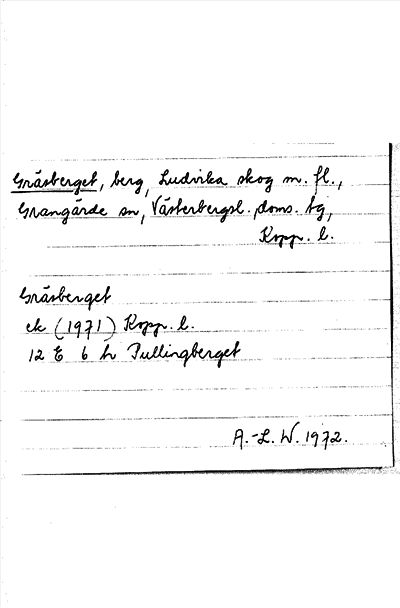 Gräsberget, berg, Ludvika skog m. fl.,
Grangärde sn, Västerbergsl. doms. tg,
Kopp. l.
Gräsberget
ek (1971) Kopp. l.
12 E 6 h Tullingberget
A.-L. W. 1972.